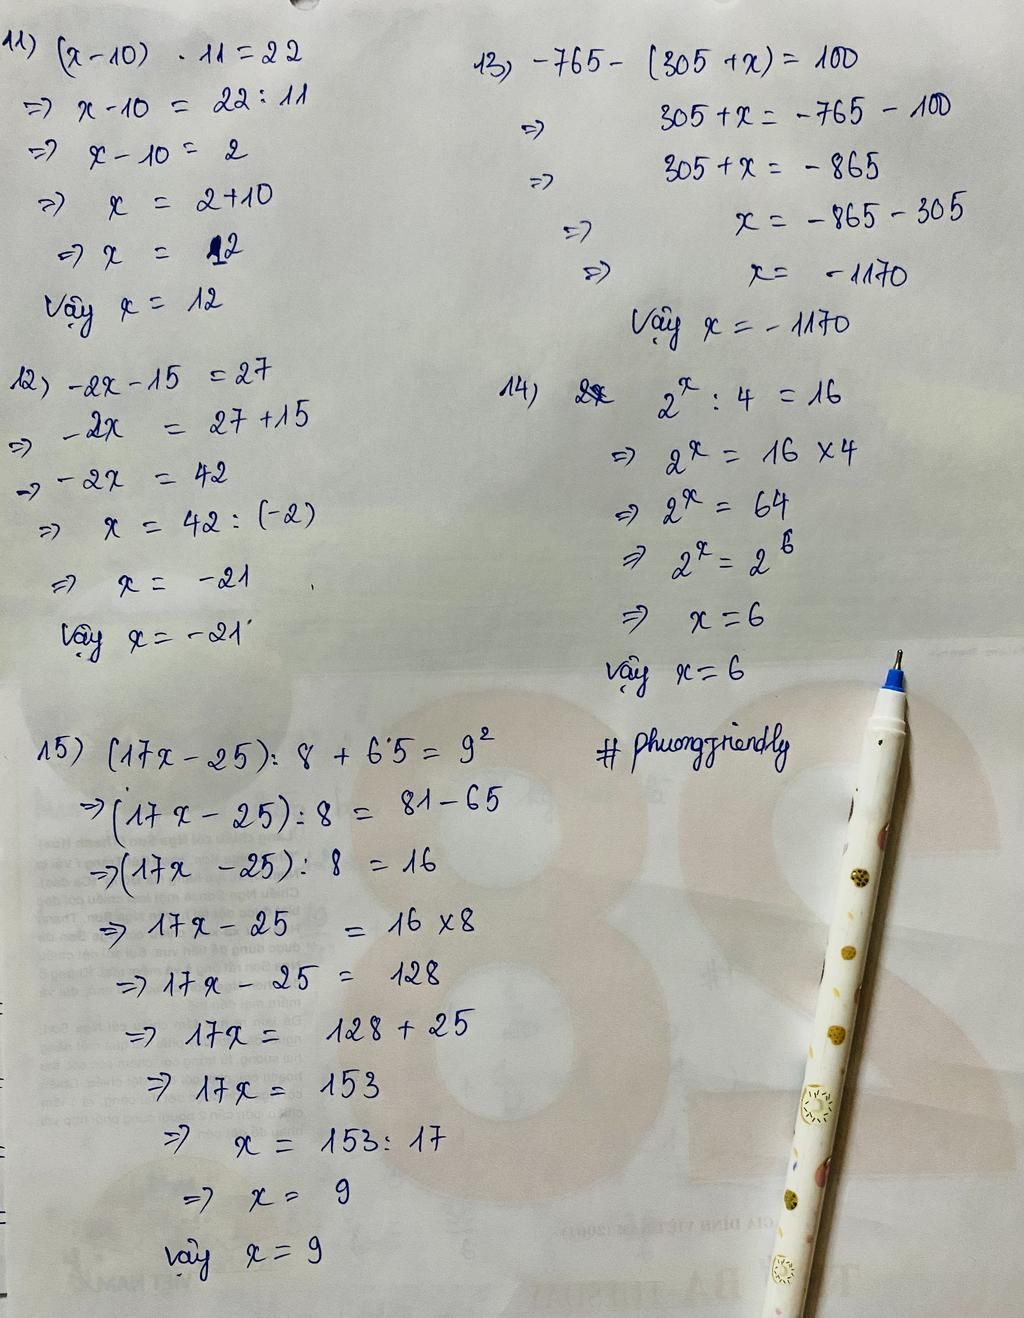 11) (x-10) . 11 = 22
=> x-10 = 22 : 11
=> x - 10 = 2
=> x = 2+10
=> x = 12
Vậy x = 12
12) -2x - 15 = 27
=> -2x = 27 + 15
=> -2x = 42
=> x = 42 : (-2)
=> x = -21
Vậy x = -21
13) -765 - (305 + x) = 100
=> 305 + x = -765 - 100
=> 305 + x = -865
=> x = -865 - 305
=> x = -1170
Vậy x = -1170
14) 2^x : 4 = 16
=> 2^x = 16 x 4
=> 2^x = 64
=> 2^x = 2^6
=> x = 6
Vậy x = 6
# phuongfriendly
15) (17x - 25) : 8 + 65 = 9²
=> (17x - 25) : 8 = 81 - 65
=> (17x - 25) : 8 = 16
=> 17x - 25 = 16 x 8
=> 17x - 25 = 128
=> 17x = 128 + 25
=> 17x = 153
=> x = 153 : 17
=> x = 9
Vậy x = 9